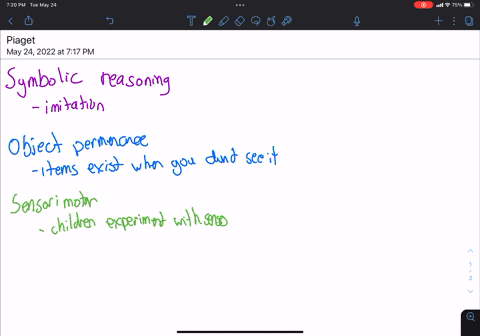 7:20 PM Tue May 24
75%
Piaget
May 24, 2022 at 7:17 PM
Symbolic reasoning
- imitation
Object permenance
- items exist when you dont see it
Sensorimotor
- children experiment with
1 / 2